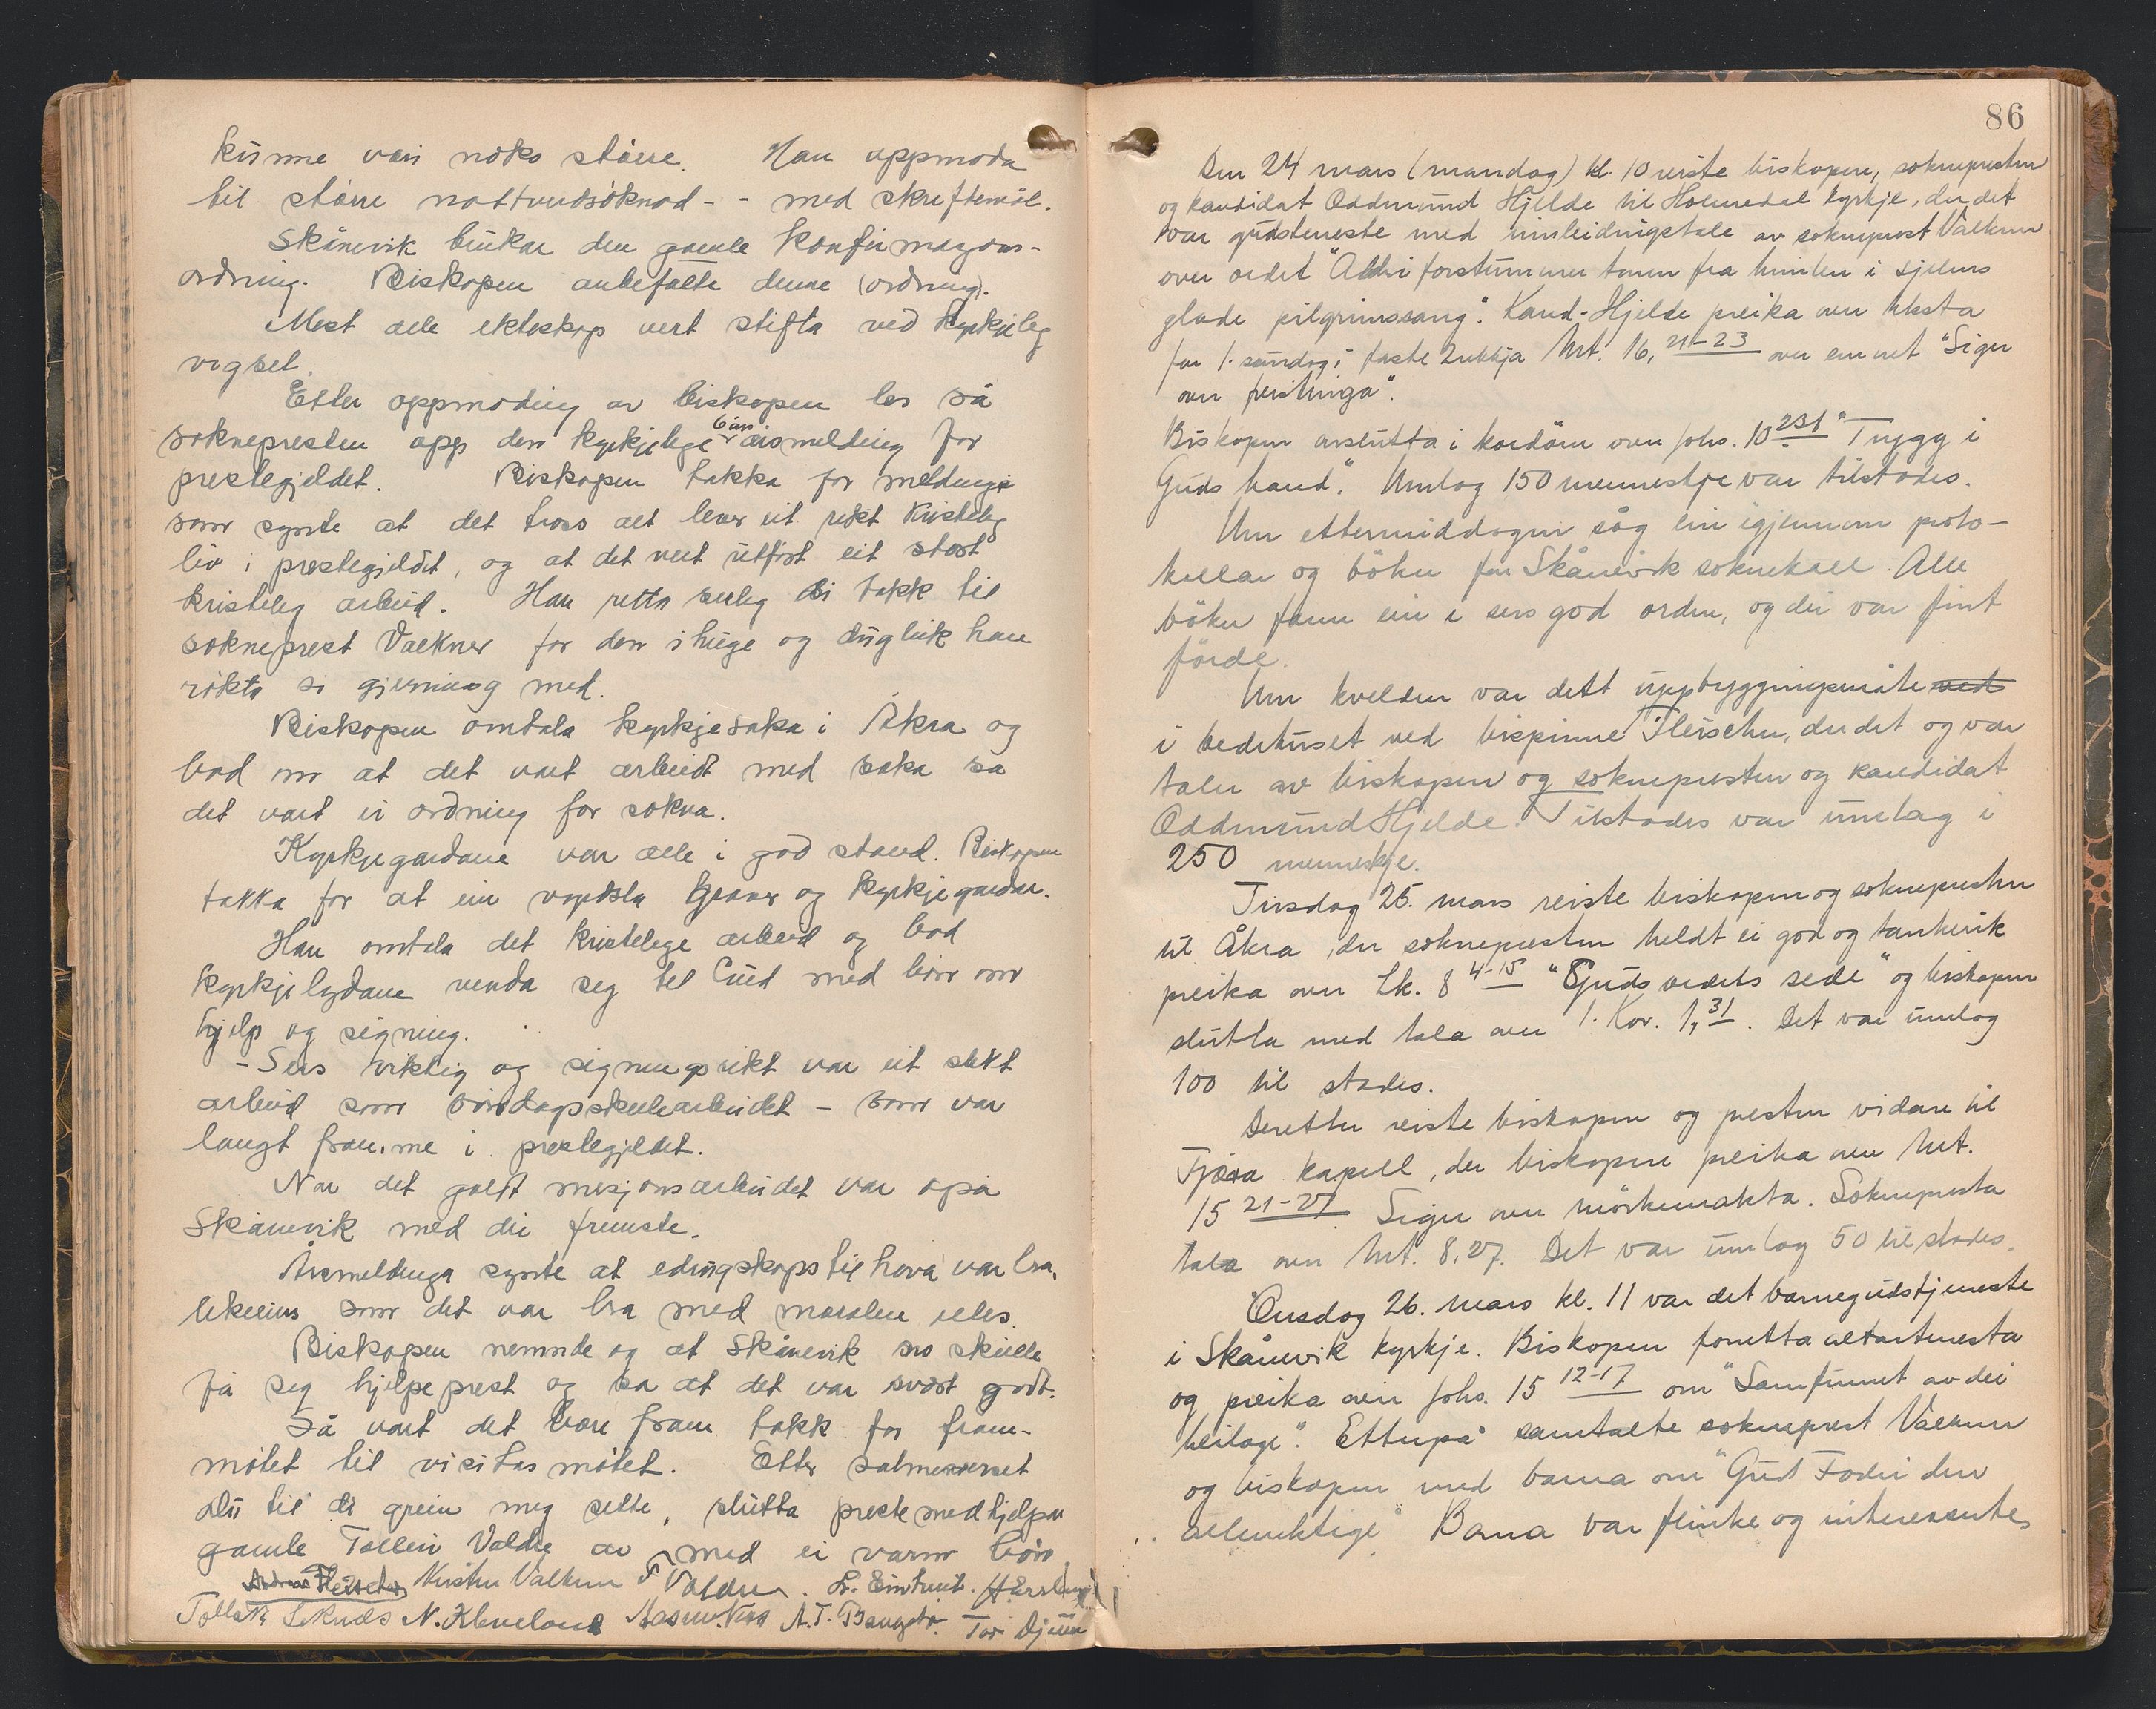 kunne vori noko større. Han oppmoda
til større nattverdsöknad - - med skriftemål.
Skånevik brukar den gamle konfirmasjons-
ordning. Biskopen anbefalte denne (ordning).
Mest alle ekteskap vert stifta ved kyrkjeleg
vigsel.
Etter oppmoding av biskopen les så
soknepresten opp den kyrkjelege 6 års årsmelding for
prestegjeldet. Biskopen takka for meldinga
som synte at det tross alt lever eit rikt kristeleg
liv i prestegjeldet, og at det vert utført eit stort
kristeleg arbeid. Han retta serleg ei takk til
sokneprest Valkner for den ihuge og dugleik han
røkta si gjerning med.
Biskopen omtala kyrkjesaka i Åkra og
bad om at det vart arbeidt med saka så
det vart ei ordning for sokna.
Kyrkjegardane var alle i god stand. Biskopen
takka for at ein vyrdsla graver og kyrkjegardar.
Han omtala det kristelege arbeid og bad
kyrkjelydane venda seg til Gud med bön om
hjelp og signing.
- Sers viktig og signingsrikt var eit slikt
arbeid som søndagsskulearbeidet - som var
langt framme i prestegjeldet.
Når det galdt misjonsarbeidet var også
Skånevik med dei fremste.
Årsmeldinga synte at edruskapstilhøva var bra,
likeeins som det var bra med moralen elles.
Biskopen nemnde og at Skånevik no skulle
få seg hjelpeprest og sa at det var svært godt.
Så vart det bore fram takk for fram-
møtet til visitasmøtet. Etter salmeverset
Du til di grein meg sette, slutta prestemedhjelpar
gamle Tollein Valdre av med ei varm bön.
Andreas Fleischer Kristen Valkner T Valdre. H. Ersland
Tollak N. Kleveland Rasmus A. T. Tor
86
Den 24 mars (mandag) kl. 10 reiste biskopen, soknepresten
og kandidat Oddmund Hjelde til Holmedal kyrkje, der det
var gudsteneste med innleidingstale av sokneprest Valkner
over ordet "Aldri forstummer tonen fra himlen i sjelens
glade pilgrimssang". Kand. Hjelde preika over teksta
for 1. sundag i faste 2 rekkja Mt. 16, 21-23 over emnet "Siger
over freistinga".
Biskopen avslutta i kordöra over Johs. 10 "Trygg i
Guds hand". Umlag 150 menneskje var tilstades.
Um ettermiddagen såg ein igjennom proto-
kollar og böker for Skånevik soknekall. Alle
böker fann ein i sers god orden, og dei var fint
förde.
Um kvelden var dett uppbyggingsmåte ved
i bedehuset ved bispinne Fleischer, der det og var
taler av biskopen og soknepresten og kandidat
Oddmund Hjelde. Tilstades var umlag i
250 menneskje.
Tirsdag 25. mars reiste biskopen og soknepresten
til Åkra, der soknepresten heldt ei god og tankerik
preika over Lk. 8 4-15 "Guds ordets sede" og biskopen
slutta med tala over 1. Kor. 1, 31. Det var umlag
100 til stades.
Deretter reiste biskopen og presten vidare til
Fjæra kapell, der biskopen preika over Mt.
15 21-27. Siger over mörkemakta. Soknepresta
tala over Mt. 8, 27. Det var umlag 50 til stades.
Onsdag 26. mars kl. 11 var det barnegudstjeneste
i Skånevik kyrkje. Biskopen foretta altartenesta
og preika over Johs. 15 12-17 om "Samfunnet av dei
heilage". Etterpå samtalte sokneprest Valkner
og biskopen med barna om "Gud Fader den
allmektige". Barna var flinke og interesserte,